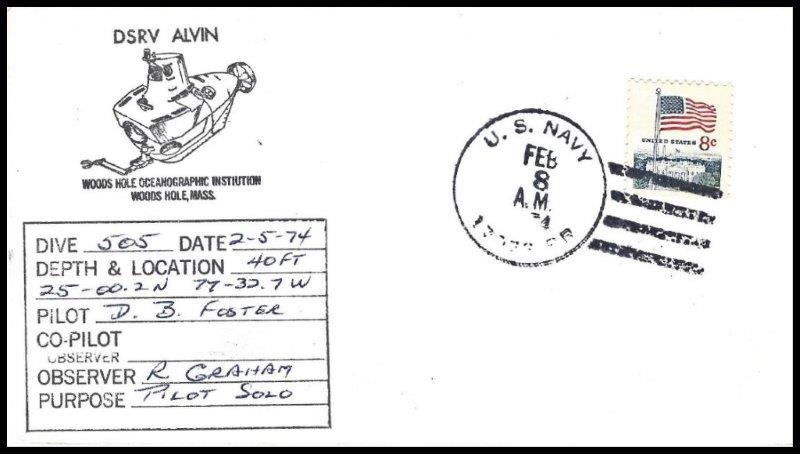 DSRV ALVIN
WOODS HOLE OCEANOGRAPHIC INSTIUTION
WOODS HOLE, MASS.
UNITED STATES 8c
U. S. NAVY
FEB
8
A.M.
DIVE 505 DATE 2-5-74
DEPTH & LOCATION 40FT
25-00.2N 77-32.7W
PILOT D. B. FOSTER
CO-PILOT
OBSERVER
OBSERVER R GRAHAM
PURPOSE PILOT SOLO